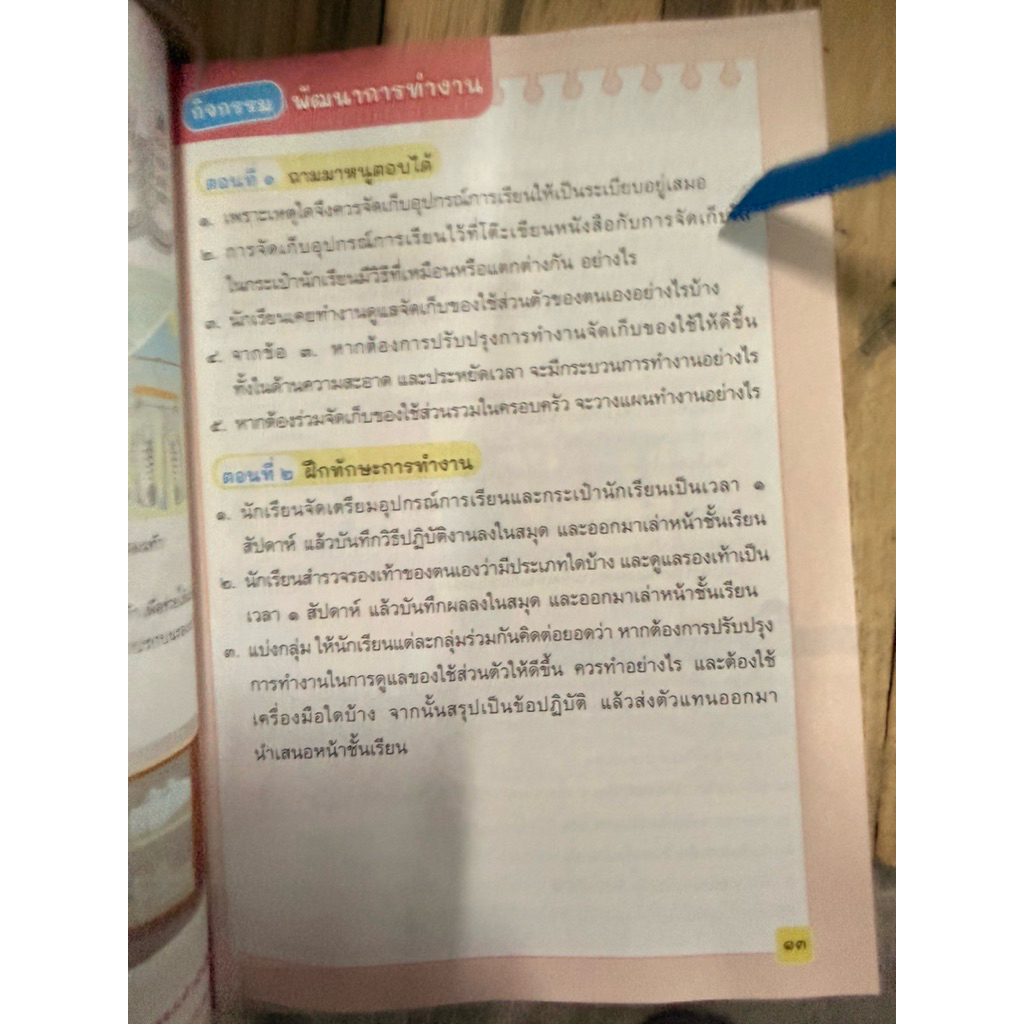 กิจกรรม พัฒนาการทำงาน
ตอนที่ ๑ ถามมาหนูตอบได้
๑. เพราะเหตุใดจึงควรจัดเก็บอุปกรณ์การเรียนให้เป็นระเบียบอยู่เสมอ
๒. การจัดเก็บอุปกรณ์การเรียนไว้ที่โต๊ะเขียนหนังสือกับการจัดเก็บ
ในกระเป๋านักเรียนมีวิธีที่เหมือนหรือแตกต่างกัน อย่างไร
๓. นักเรียนเคยทำงานดูแลจัดเก็บของใช้ส่วนตัวของตนเองอย่างไรบ้าง
๔. จากข้อ ๓. หากต้องการปรับปรุงการทำงานจัดเก็บของใช้ให้ดีขึ้น
ทั้งในด้านความสะอาด และประหยัดเวลา จะมีกระบวนการทำงานอย่างไร
๕. หากต้องร่วมจัดเก็บของใช้ส่วนรวมในครอบครัว จะวางแผนทำงานอย่างไร
ตอนที่ ๒ ฝึกทักษะการทำงาน
๑. นักเรียนจัดเตรียมอุปกรณ์การเรียนและกระเป๋านักเรียนเป็นเวลา ๑
สัปดาห์ แล้วบันทึกวิธีปฏิบัติงานลงในสมุด และออกมาเล่าหน้าชั้นเรียน
๒. นักเรียนสำรวจรองเท้าของตนเองว่ามีประเภทใดบ้าง และดูแลรองเท้าเป็น
เวลา ๑ สัปดาห์ แล้วบันทึกผลลงในสมุด และออกมาเล่าหน้าชั้นเรียน
๓. แบ่งกลุ่ม ให้นักเรียนแต่ละกลุ่มร่วมกันคิดต่อยอดว่า หากต้องการปรับปรุง
การทำงานในการดูแลของใช้ส่วนตัวให้ดีขึ้น ควรทำอย่างไร และต้องใช้
เครื่องมือใดบ้าง จากนั้นสรุปเป็นข้อปฏิบัติ แล้วส่งตัวแทนออกมา
นำเสนอหน้าชั้นเรียน
๑๓